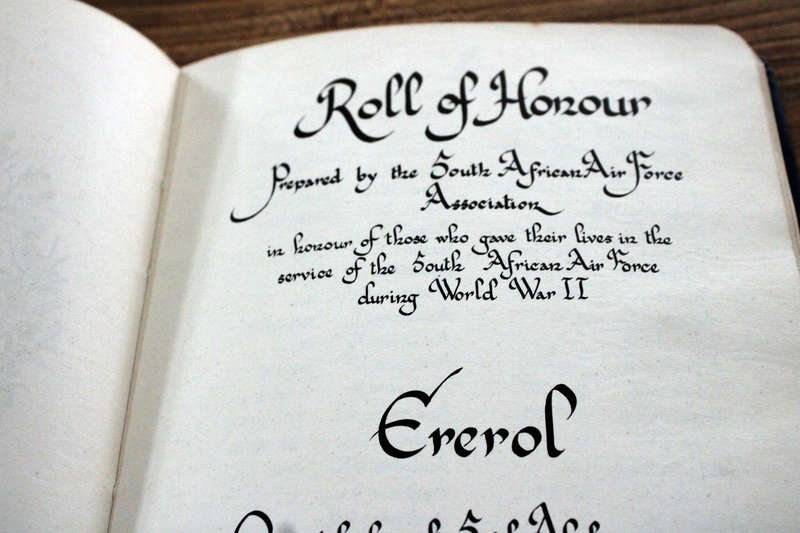 Roll of Honour
Prepared by the South African Air Force
Association
in honour of those who gave their lives in the
service of the South African Air Force
during World War II
Ererol